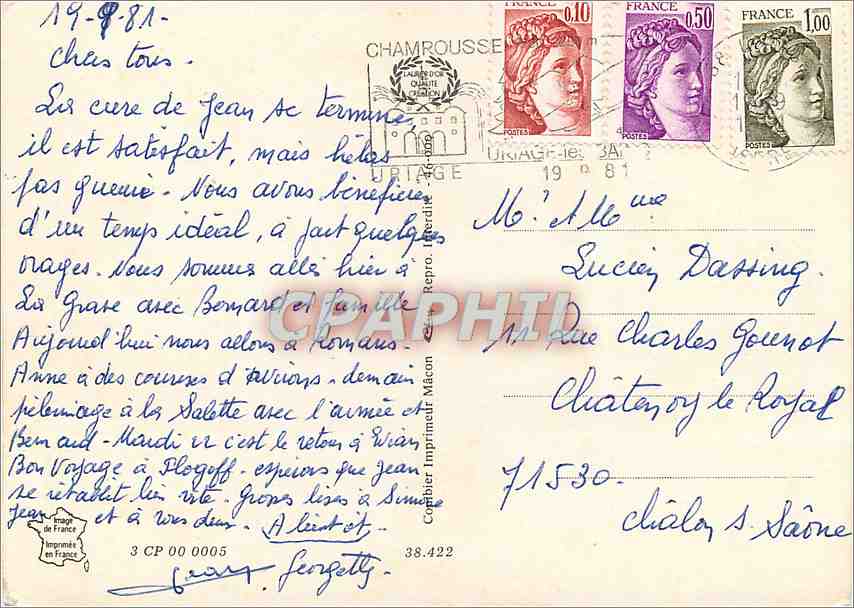 19-9-81-
Chers tous.
La cure de Jean se termine,
il est satisfait, mais hélas
pas guerie. Nous avons bénéficier
d'un temps idéal, à part quelques
orages. Nous sommes allés hier à
La Grave avec Bernard et famille
Aujourd'hui nous allons à Romans.
Anne à des courses d'avirons. demain
pélerinage à la Salette avec l'armée et
Bernard - Mardi 22 c'est le retour à Evian
Bon Voyage à Plogoff. espérons que Jean
se rétablit bien vite. Grosses bises à Simone
Jean et à vous deux. A bientôt.
Georgette.
FRANCE 0,10 POSTES
FRANCE 0,50 POSTES
FRANCE 1,00 POSTES
CHAMROUSSE
LAURIER D'OR
QUALITE
CREATION
URIAGE
URIAGE-les-BAINS
19 9 81
38
M. et Mme
Lucien Dassing.
11 Rue Charles Gounot
Châtenoy le Royal
71530.
Châlon s. Saône
Combier Imprimeur Mâcon
Repro. Interdite
CPAPHIL
Image
de France
Imprimée
en France
3 CP 00 0005
38.422